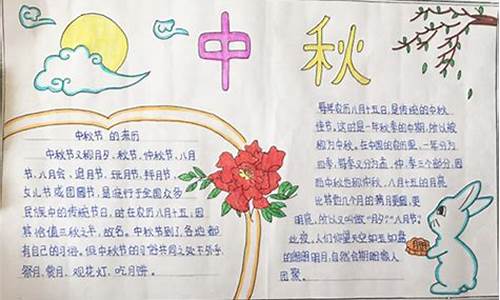 中秋
中秋节的来历
中秋节又称月夕，秋节，仲秋节，八月
节，八月会，追月节，玩月节，拜月节，
女儿节或团圆节，是流行于全国众多
民族中的传统节日，时在农历八月十五，因
其恰值三秋之半，故名。中秋节到了，各地都
有自己的习俗。但中秋节的习俗共同之处不外乎
祭月，赏月，观花灯，吃月饼。
每年农历八月十五日，是传统的中秋
佳节。这时是一年秋季的中期，所以被
称为中秋。在中国的农历里，一年分为
四季，每季又分为孟，仲，季三个部分，因
而中秋也称仲秋。八月十五的月亮
比其他几个月的满月更圆，更
明亮，所以又叫做"月夕""八月节"。
此夜，人们仰望天空如玉如盘
的朗朗明月，自然会期盼家人
团聚。